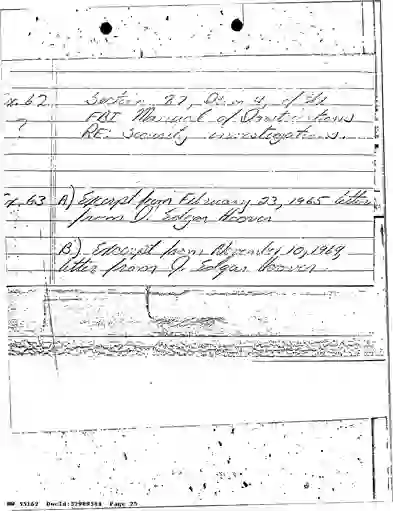 x. 62 Section 87, Item 4, of the
? FBI Manual of Instructions
RE: Security investigations.
x. 63 A) Excerpt from February 23, 1965 letter
from J. Edgar Hoover
B.) Excerpt from November 10, 1969,
letter from J. Edgar Hoover.
DocId:32989581 Page 25